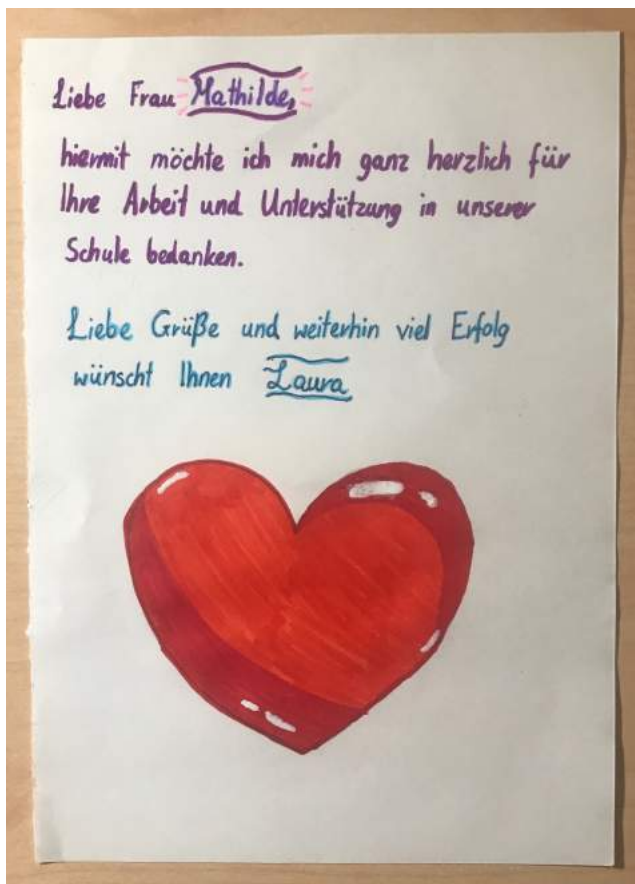 Liebe Frau Mathilde,
hiermit möchte ich mich ganz herzlich für
Ihre Arbeit und Unterstützung in unserer
Schule bedanken.
Liebe Grüße und weiterhin viel Erfolg
wünscht Ihnen Laura